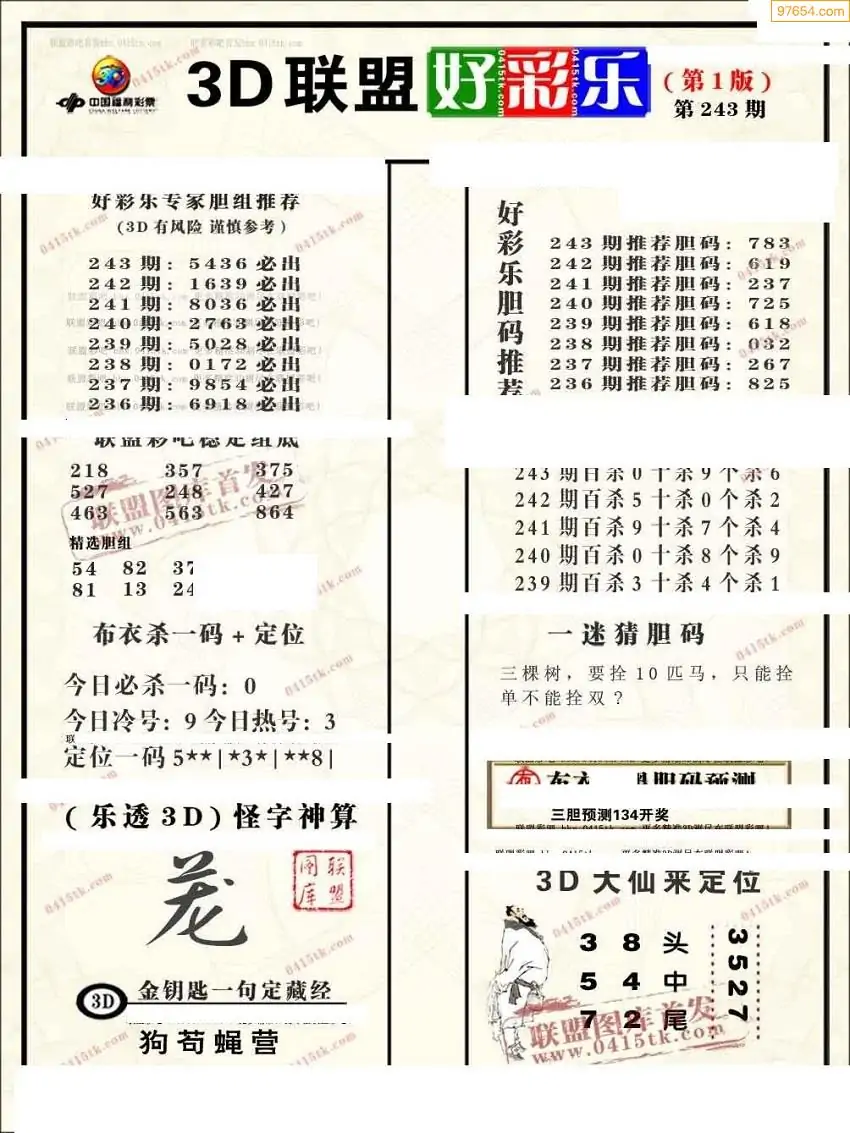 97654.com
中国福利彩票
CHINA WELFARE LOTTERY
3D联盟好彩乐
0415tk.com
0415tk.com
(第1版)
第243期
好彩乐专家胆组推荐
(3D有风险 谨慎参考)
243期: 5436必出
242期: 1639必出
241期: 8036必出
240期: 2763必出
239期: 5028必出
238期: 0172必出
237期: 9854必出
236期: 6918必出
联盟彩吧稳定组底
218 357 375
527 248 427
463 563 864
精选胆组
54 82 37
81 13 24
布衣杀一码+定位
今日必杀一码: 0
今日冷号: 9 今日热号: 3
联
定位一码5**|*3*|**8|
(乐透3D)怪字神算
联盟图库
3D
金钥匙一句定藏经
狗苟蝇营
好彩乐胆码推荐
243期推荐胆码: 783
242期推荐胆码: 619
241期推荐胆码: 237
240期推荐胆码: 725
239期推荐胆码: 618
238期推荐胆码: 032
237期推荐胆码: 267
236期推荐胆码: 825
243期百杀0十杀9个杀6
242期百杀5十杀0个杀2
241期百杀9十杀7个杀4
240期百杀0十杀8个杀9
239期百杀3十杀4个杀1
一迷猜胆码
三棵树，要拴10匹马，只能拴
单不能拴双？
三胆预测134开奖
3D大仙来定位
3 8 头
5 4 中
7 2 尾
3527
联盟图库首发
www.0415tk.com
联盟图库首发
www.0415tk.com